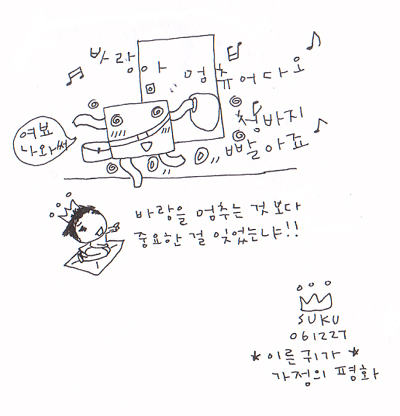 바람아 멈추어다오
여보
나와써
청바지
빨아죠
바람을 멈추는 것 보다
중요한 걸 잊었는냐!!
SUKU
061227
★이른 귀가★
가정의 평화